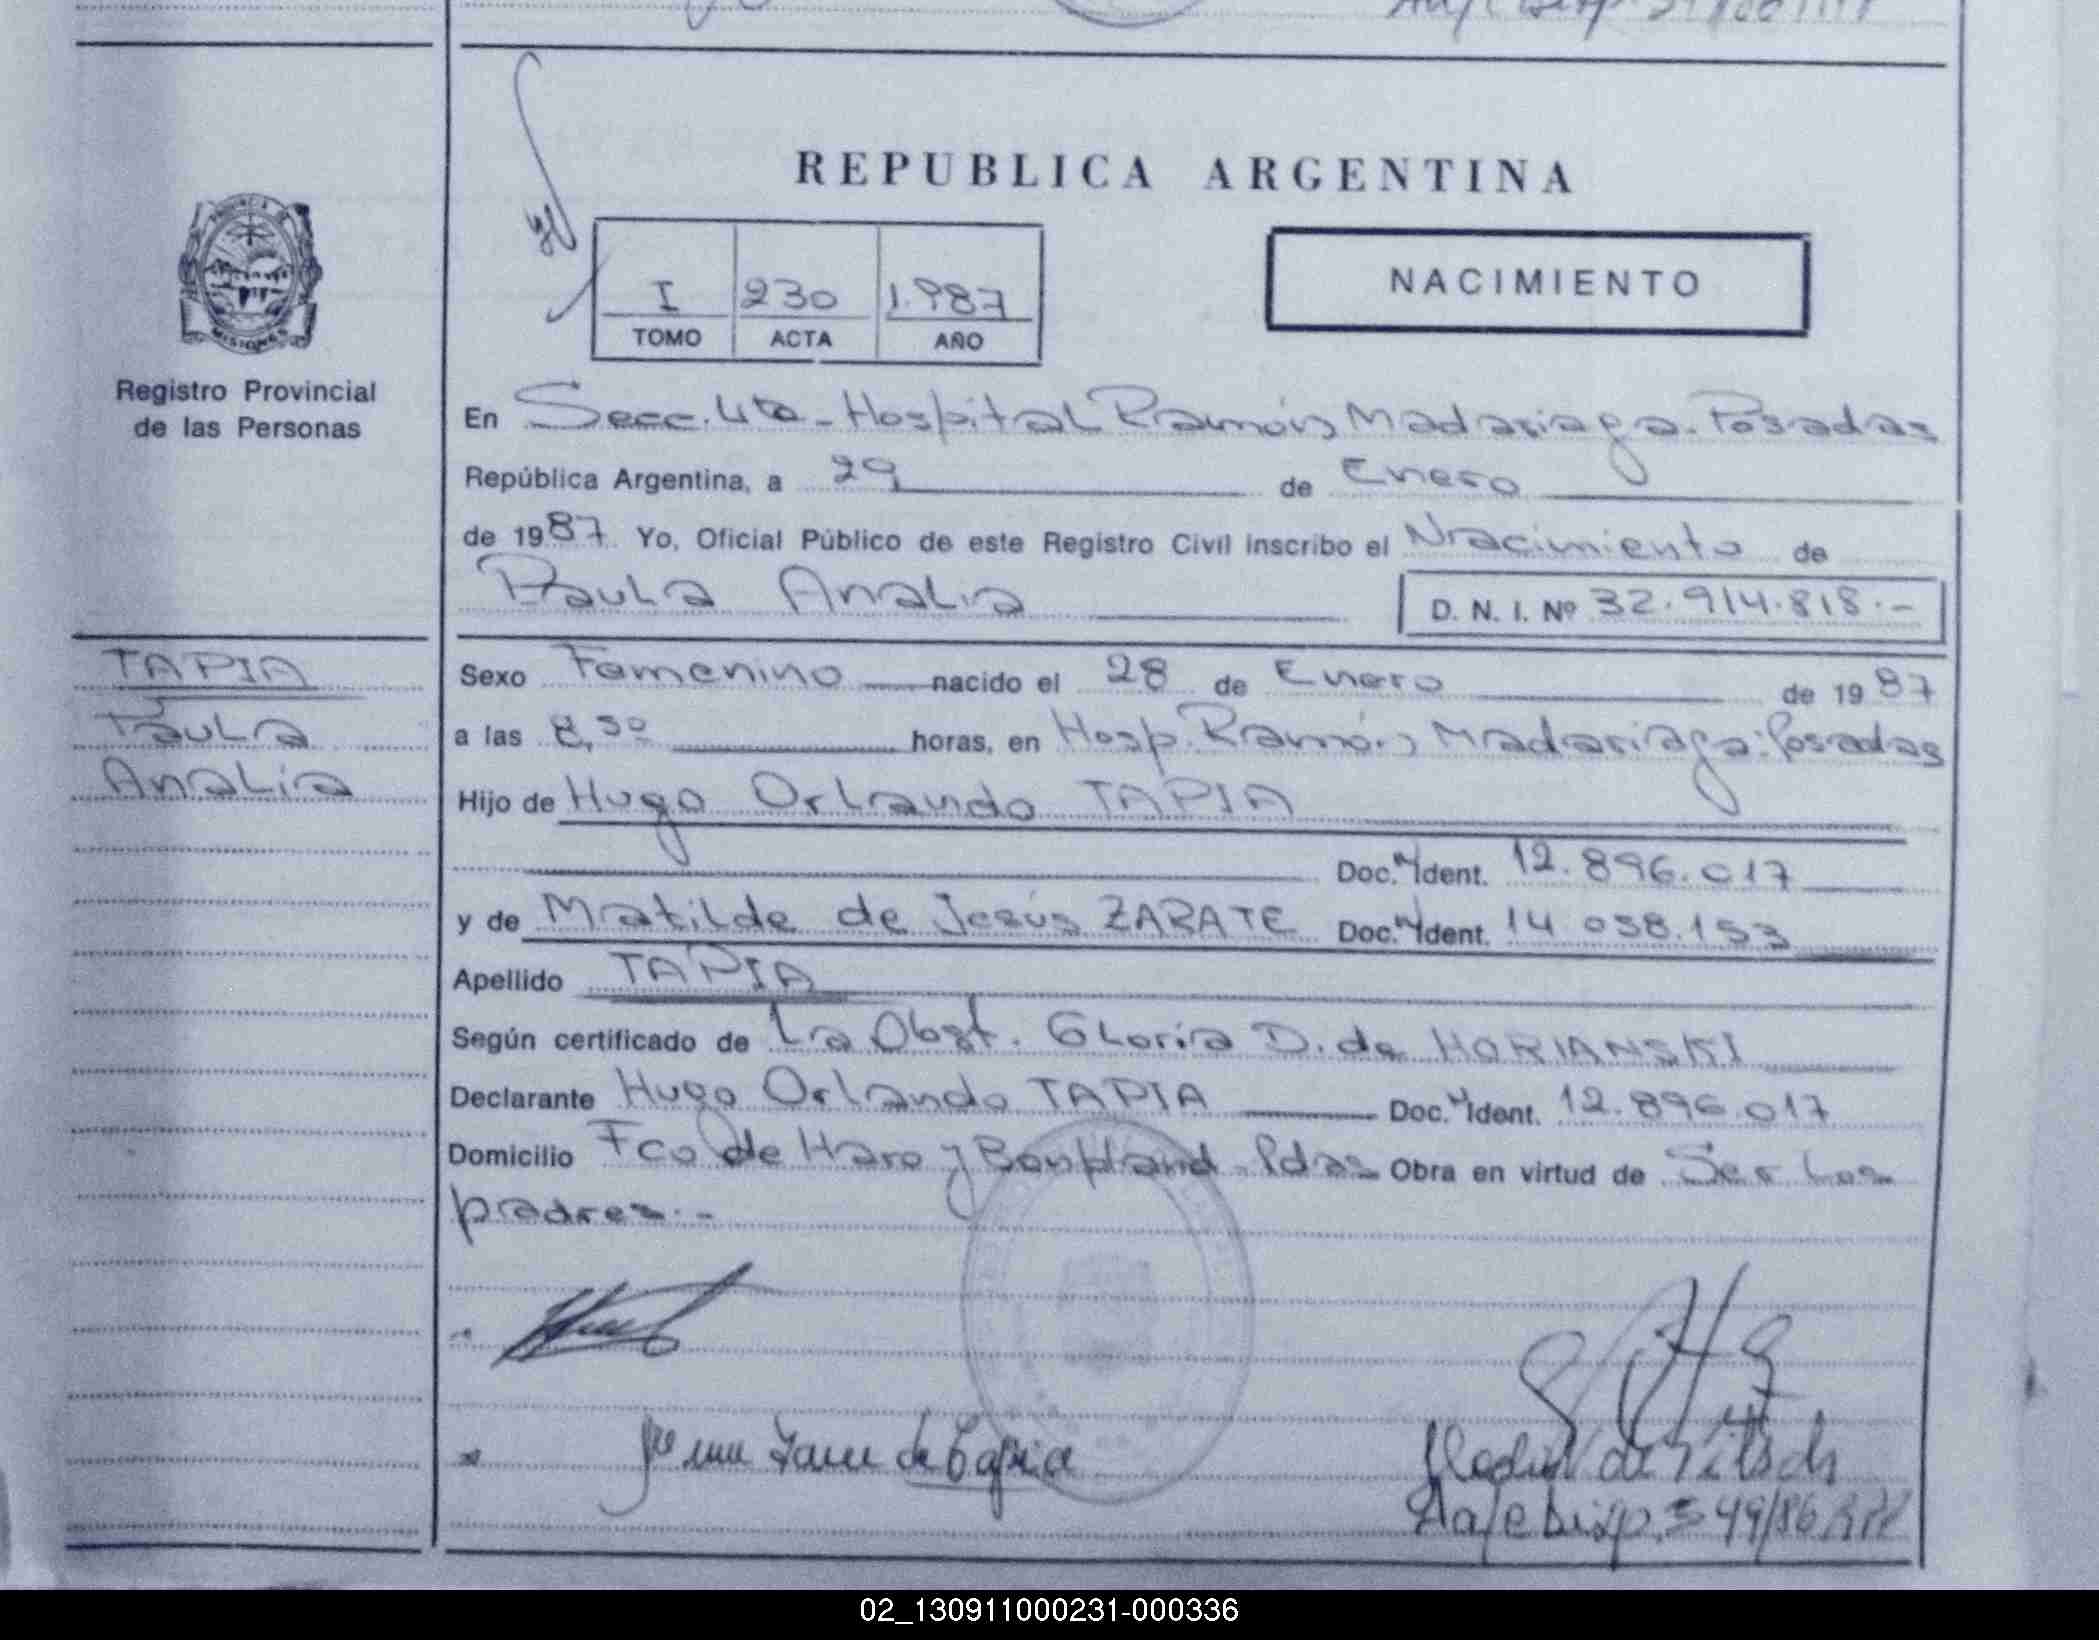 REPUBLICA ARGENTINA
PROVINCIA DE
MISIONES
Registro Provincial
de las Personas
I 230 1.987
TOMO ACTA AÑO
NACIMIENTO
En Secc. 4ta - Hospital Ramón Madariaga. Posadas
República Argentina, a 29 de Enero
de 1987 Yo, Oficial Público de este Registro Civil inscribo el Nacimiento de
Paula Analia
D. N. I. Nº 32.914.818.-
TAPIA
Paula
Analía
Sexo Femenino nacido el 28 de Enero de 1987
a las 8,30 horas, en Hosp. Ramón Madariaga. Posadas
Hijo de Hugo Orlando TAPIA
Doc. Ident. 12.896.017
y de Matilde de Jesús ZARATE Doc. Ident. 14 038.153
Apellido TAPIA
Según certificado de La Obst. Gloria D. de HORIANSKI
Declarante Hugo Orlando TAPIA Doc. Ident. 12.896.017
Domicilio Fco de Haro y Bonpland - Pdas Obra en virtud de Ser Los
padres.-
de Tapia
A/c Disp. 349/86
02_130911000231-000336